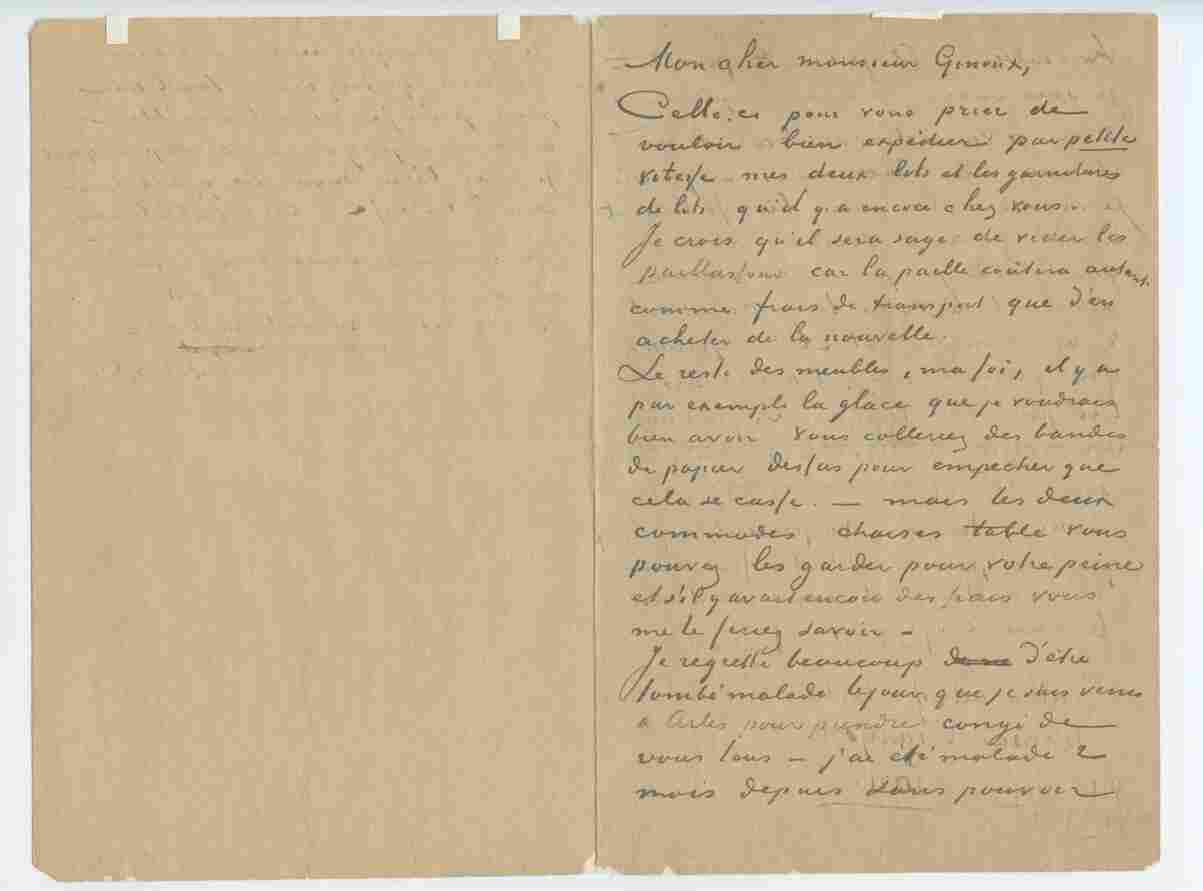 Mon cher monsieur Ginoux,
Celle-ci pour vous prier de
vouloir bien expédier par petite
vitesse mes deux lits et les garnitures
de lits qu'il y a encore chez vous.
Je crois qu'il sera sage de vider les
paillassons car la paille coûtera autant
comme frais de transport que d'en
acheter de la nouvelle.
Le reste des meubles, ma foi, il y a
par exemple la glace que je voudrais
bien avoir Vous colleriez des bandes
de papier dessus pour empecher que
cela se casse. — mais les deux
commodes, chaises table vous
pouvez les garder pour votre peine
et s'il y avait encore des frais vous
me le feriez savoir —
Je regrette beaucoup d'être
tombé malade le jour que je suis venu
a Arles pour prendre congé de
vous tous — j'ai été malade 2
mois depuis sans pouvoir